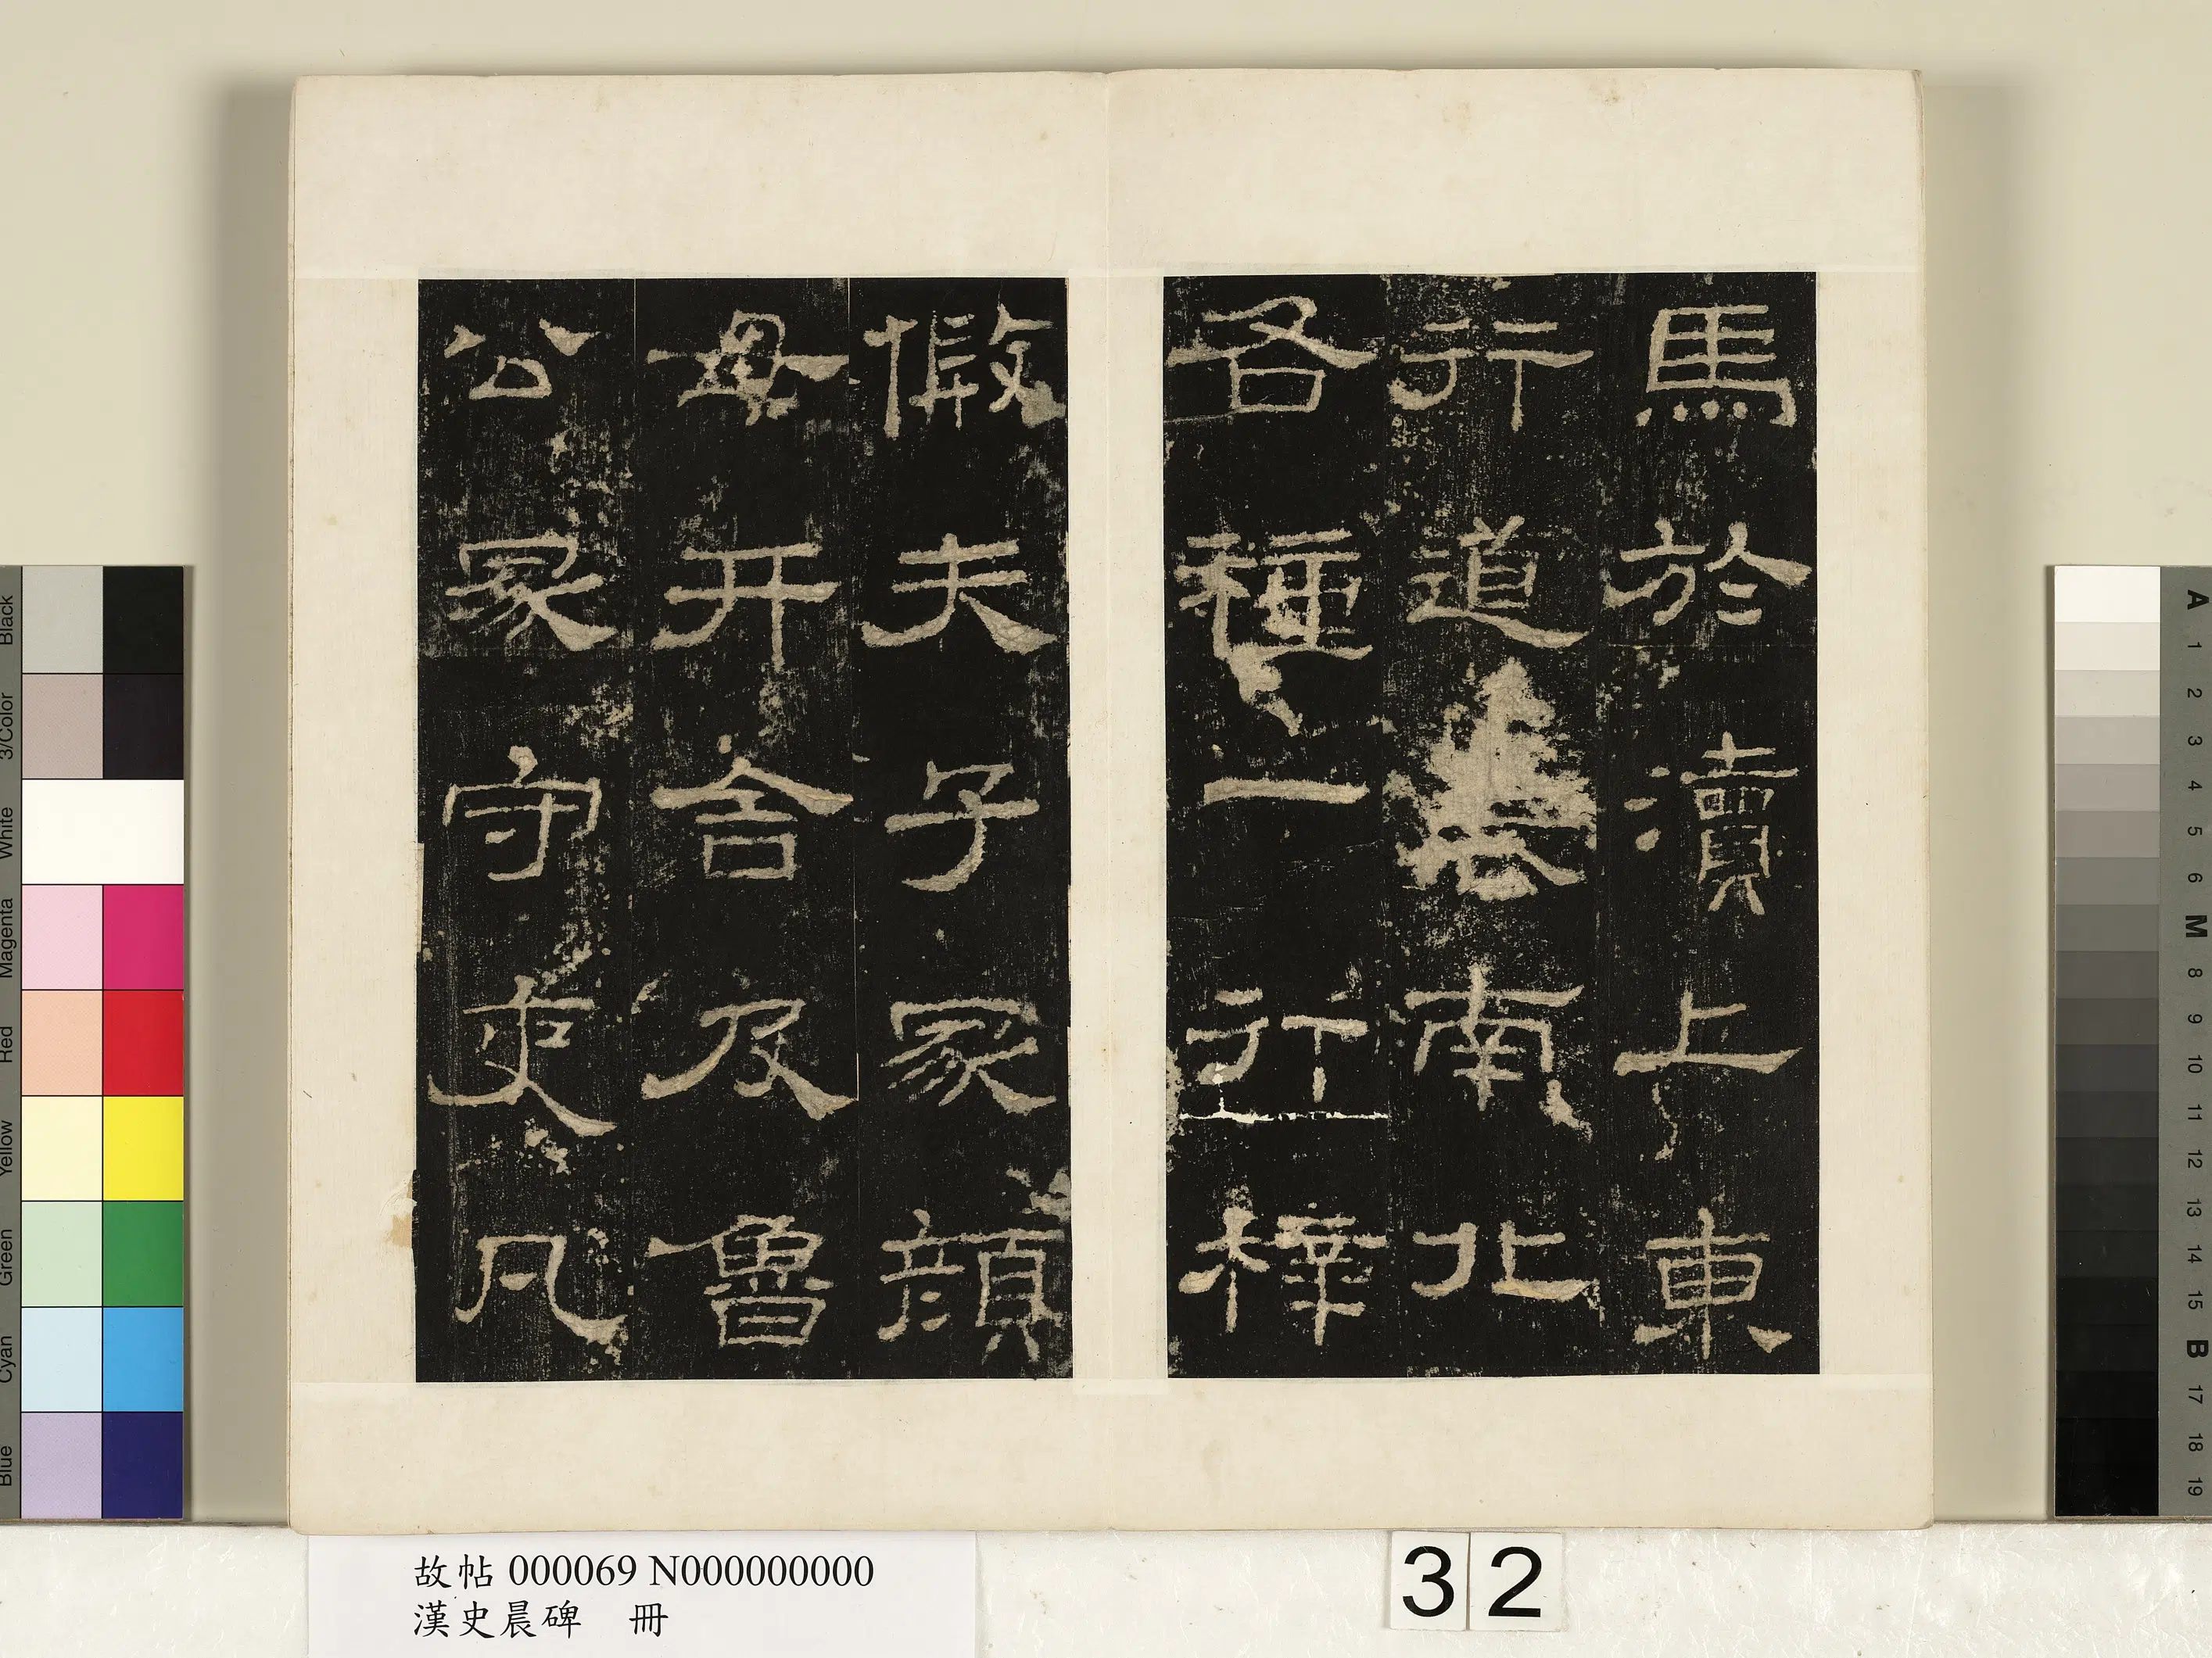 馬於瀆上東
行道南北
各種一行梓
假夫子冢顏
母井舍及魯
公冢守吏凡
故帖 000069 N000000000
漢史晨碑 冊
32
Black
3/Color
White
Magenta
Red
Yellow
Green
Cyan
Blue
A 1 2 3 4 5 6 M 8 9 10 11 12 13 14 15 B 17 18 19